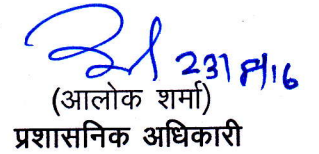 23/8/16
(आलोक शर्मा)
प्रशासनिक अधिकारी